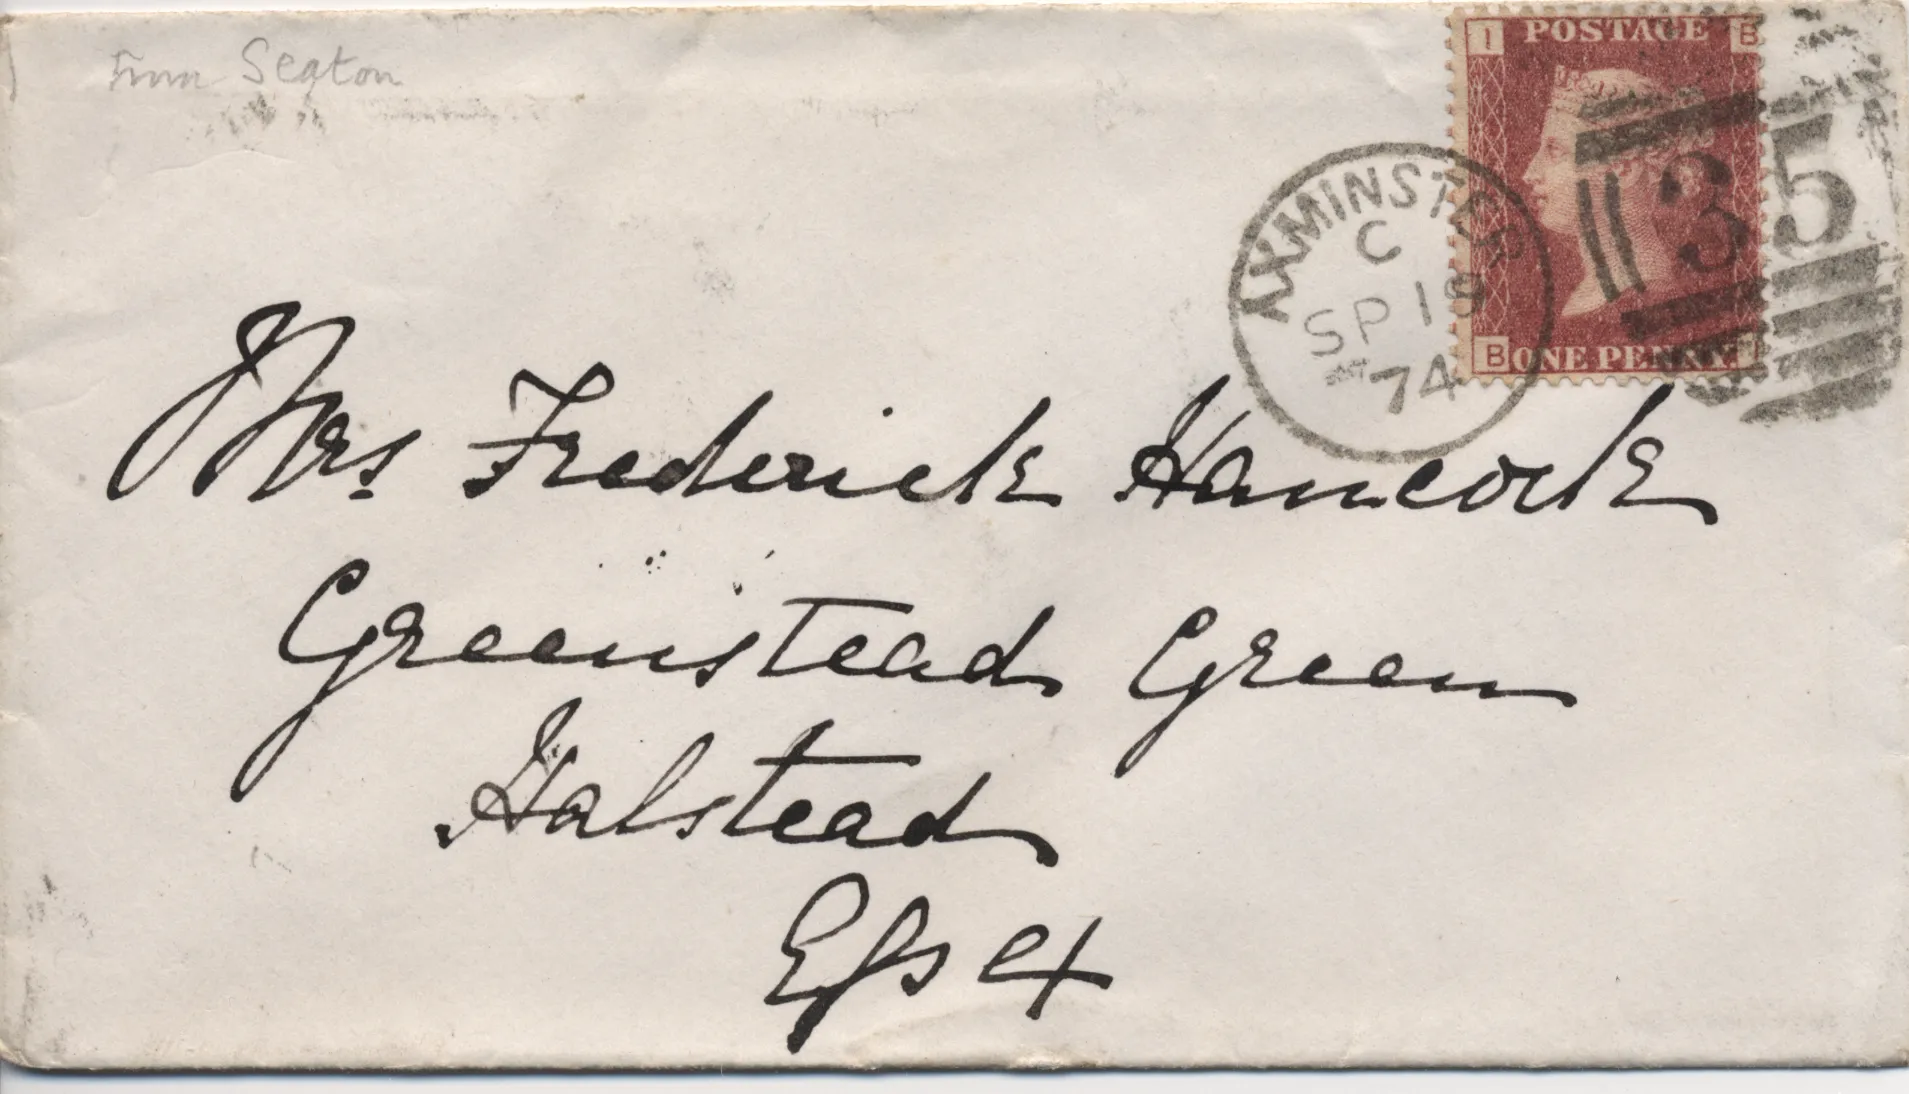 From Seaton
I POSTAGE B
AXMINSTER
C
SP 18
74
35
B ONE PENNY I
Mrs Frederick Hancock
Greenstead Green
Halstead
Essex